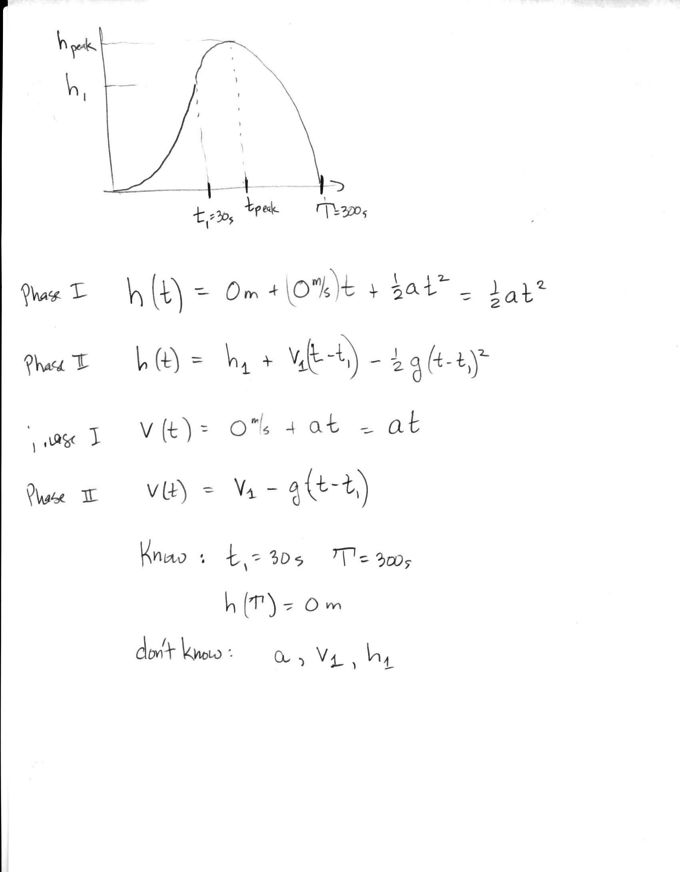 h peak
h₁
t₁=30s t peak T=300s
Phase I h(t) = 0m + (0 m/s)t + ½at² = ½at²
Phase II h(t) = h₁ + V₁(t-t₁) - ½g(t-t₁)²
I V(t) = 0 m/s + at = at
Phase II V(t) = V₁ - g(t-t₁)
Know : t₁=30s T=300s
h(T) = 0m
don't know: a, V₁, h₁